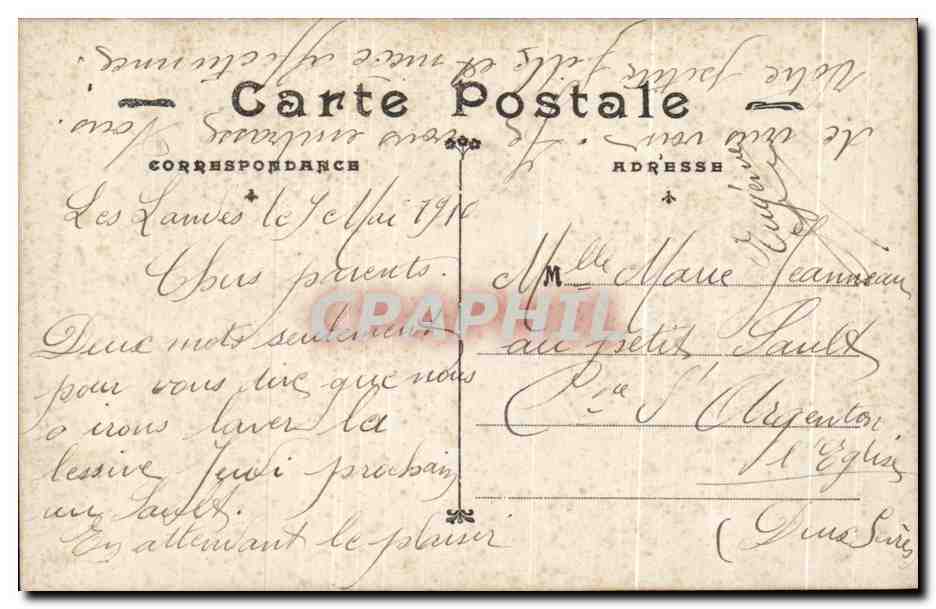 Carte Postale
CORRESPONDANCE
ADRESSE
Les Landes le 9 Mai 1910
Chers parents.
Deux mots seulement
pour vous dire que nous
irons laver la
lessive Jeudi prochain
au Sault.
En attendant le plaisir
de vous voir. Je vous embrasse tous.
Votre petite fille et nièce affectionnée.
Eugénie
Mlle Marie Jeanneau
au petit Sault
Cne St Argenton
l'Eglise
(Deux Sèvres
CPAPHIL